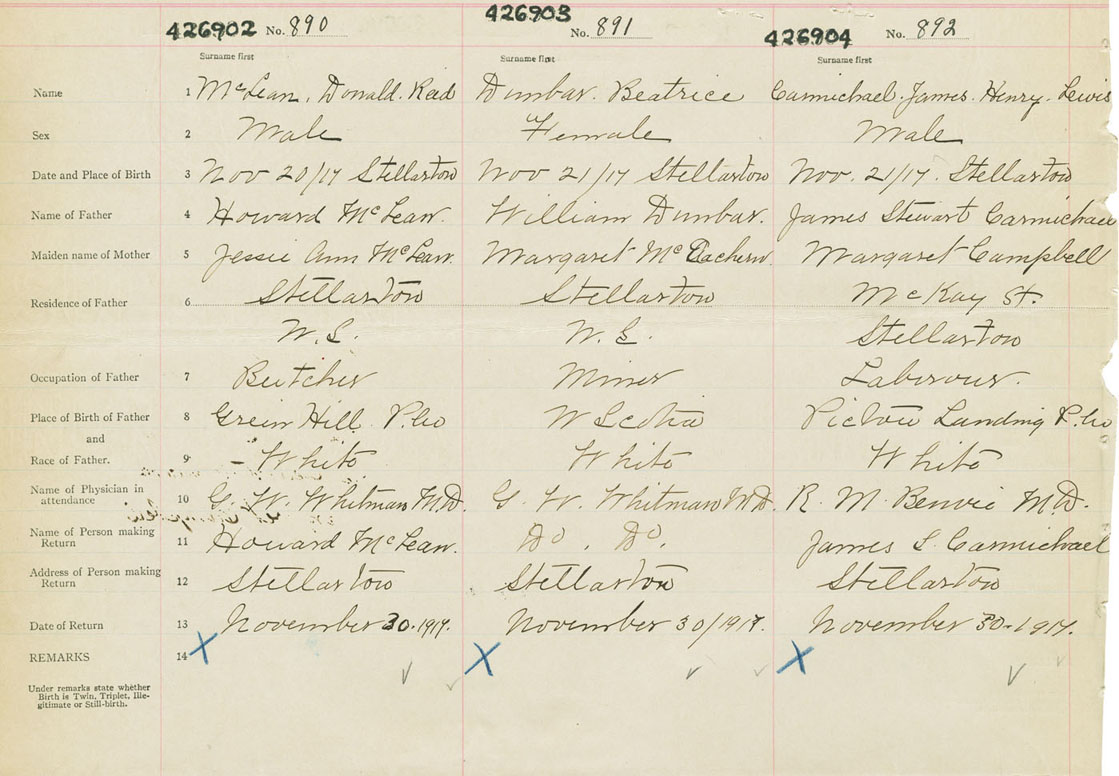 426902 No. 890 426903 No. 891 426904 No. 892
Surname first Surname first Surname first
Name 1 McLean, Donald. Reid Dunbar. Beatrice Carmichael. James. Henry. Lewis
Sex 2 Male Female Male
Date and Place of Birth 3 Nov 20/17 Stellarton Nov 21/17 Stellarton Nov. 21/17. Stellarton
Name of Father 4 Howard McLean. William Dunbar. James Stewart Carmichael
Maiden name of Mother 5 Jessie Ann McLean. Margaret McEachern. Margaret Campbell
Residence of Father 6 Stellarton Stellarton McKay St.
N.S. N.S. Stellarton
Occupation of Father 7 Butcher Miner Labourer.
Place of Birth of Father 8 Green Hill P.Co N Scotia Pictou Landing P.Co
and
Race of Father. 9 White White White
Name of Physician in
attendance 10 G. W. Whitman M.D. G. W. Whitman M.D. R. M. Benvie M.D.
Name of Person making
Return 11 Howard McLean. Do. Do. James S. Carmichael
Address of Person making
Return 12 Stellarton Stellarton Stellarton
Date of Return 13 November 30.1917. November 30/1917. November 30-1917.
REMARKS 14 X X X
Under remarks state whether
Birth is Twin, Triplet, Ille-
gitimate or Still-birth.